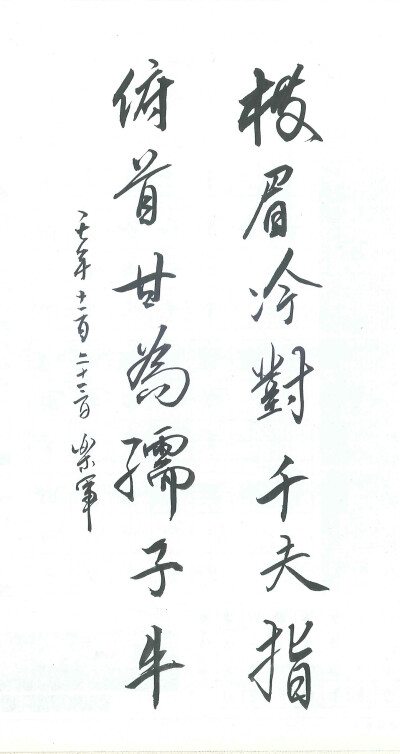 橫眉冷對千夫指
俯首甘為孺子牛
年十一月二十三日 軍